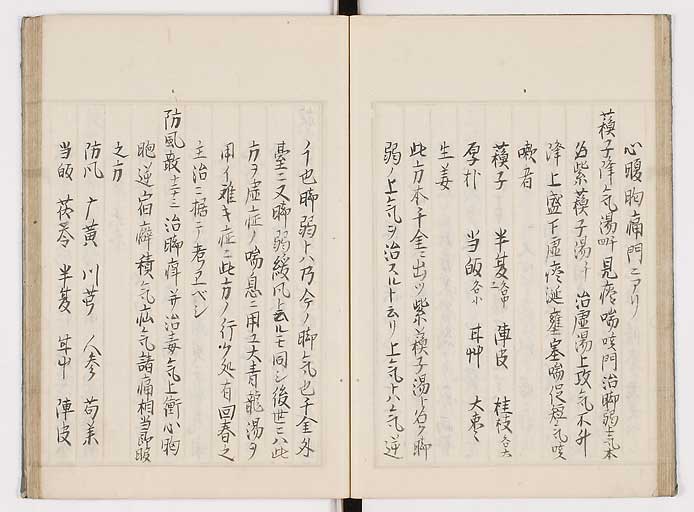 心腹胸痛門ニアリ
蘓子降气湯 見痰喘咳門 治脚弱上气 本
名紫蘓子湯 治虚陽上攻气不升
降上盛下虚痰涎壅塞喘促短气咳
嗽者
蘓子 半夏 各中 陳皮 桂枝
厚朴 当皈 各小 甘艸 大棗
生姜
此方本千金ニ出ツ紫蘓子湯ト名ク脚
弱ノ上气ヲ治スルト云リ上气トハ气逆
ノ也脚弱トハ乃今ノ脚气也千金外
臺ニ又脚弱緩風ト云ルモ同シ後世ニハ此
方ヲ虚症ノ喘息ニ用ユ大青龍湯ヲ
用イ難キ症ニ此方ノ行ク処有回春之
主治ニ据テ考ユベシ
防風散 治脚痺并治毒气上衝心胸
呕逆宿癖積气疝气諸痛相当即服
之方
防風 广黄 川芎 人参 芍薬
当皈 茯苓 半夏 甘中 陳皮